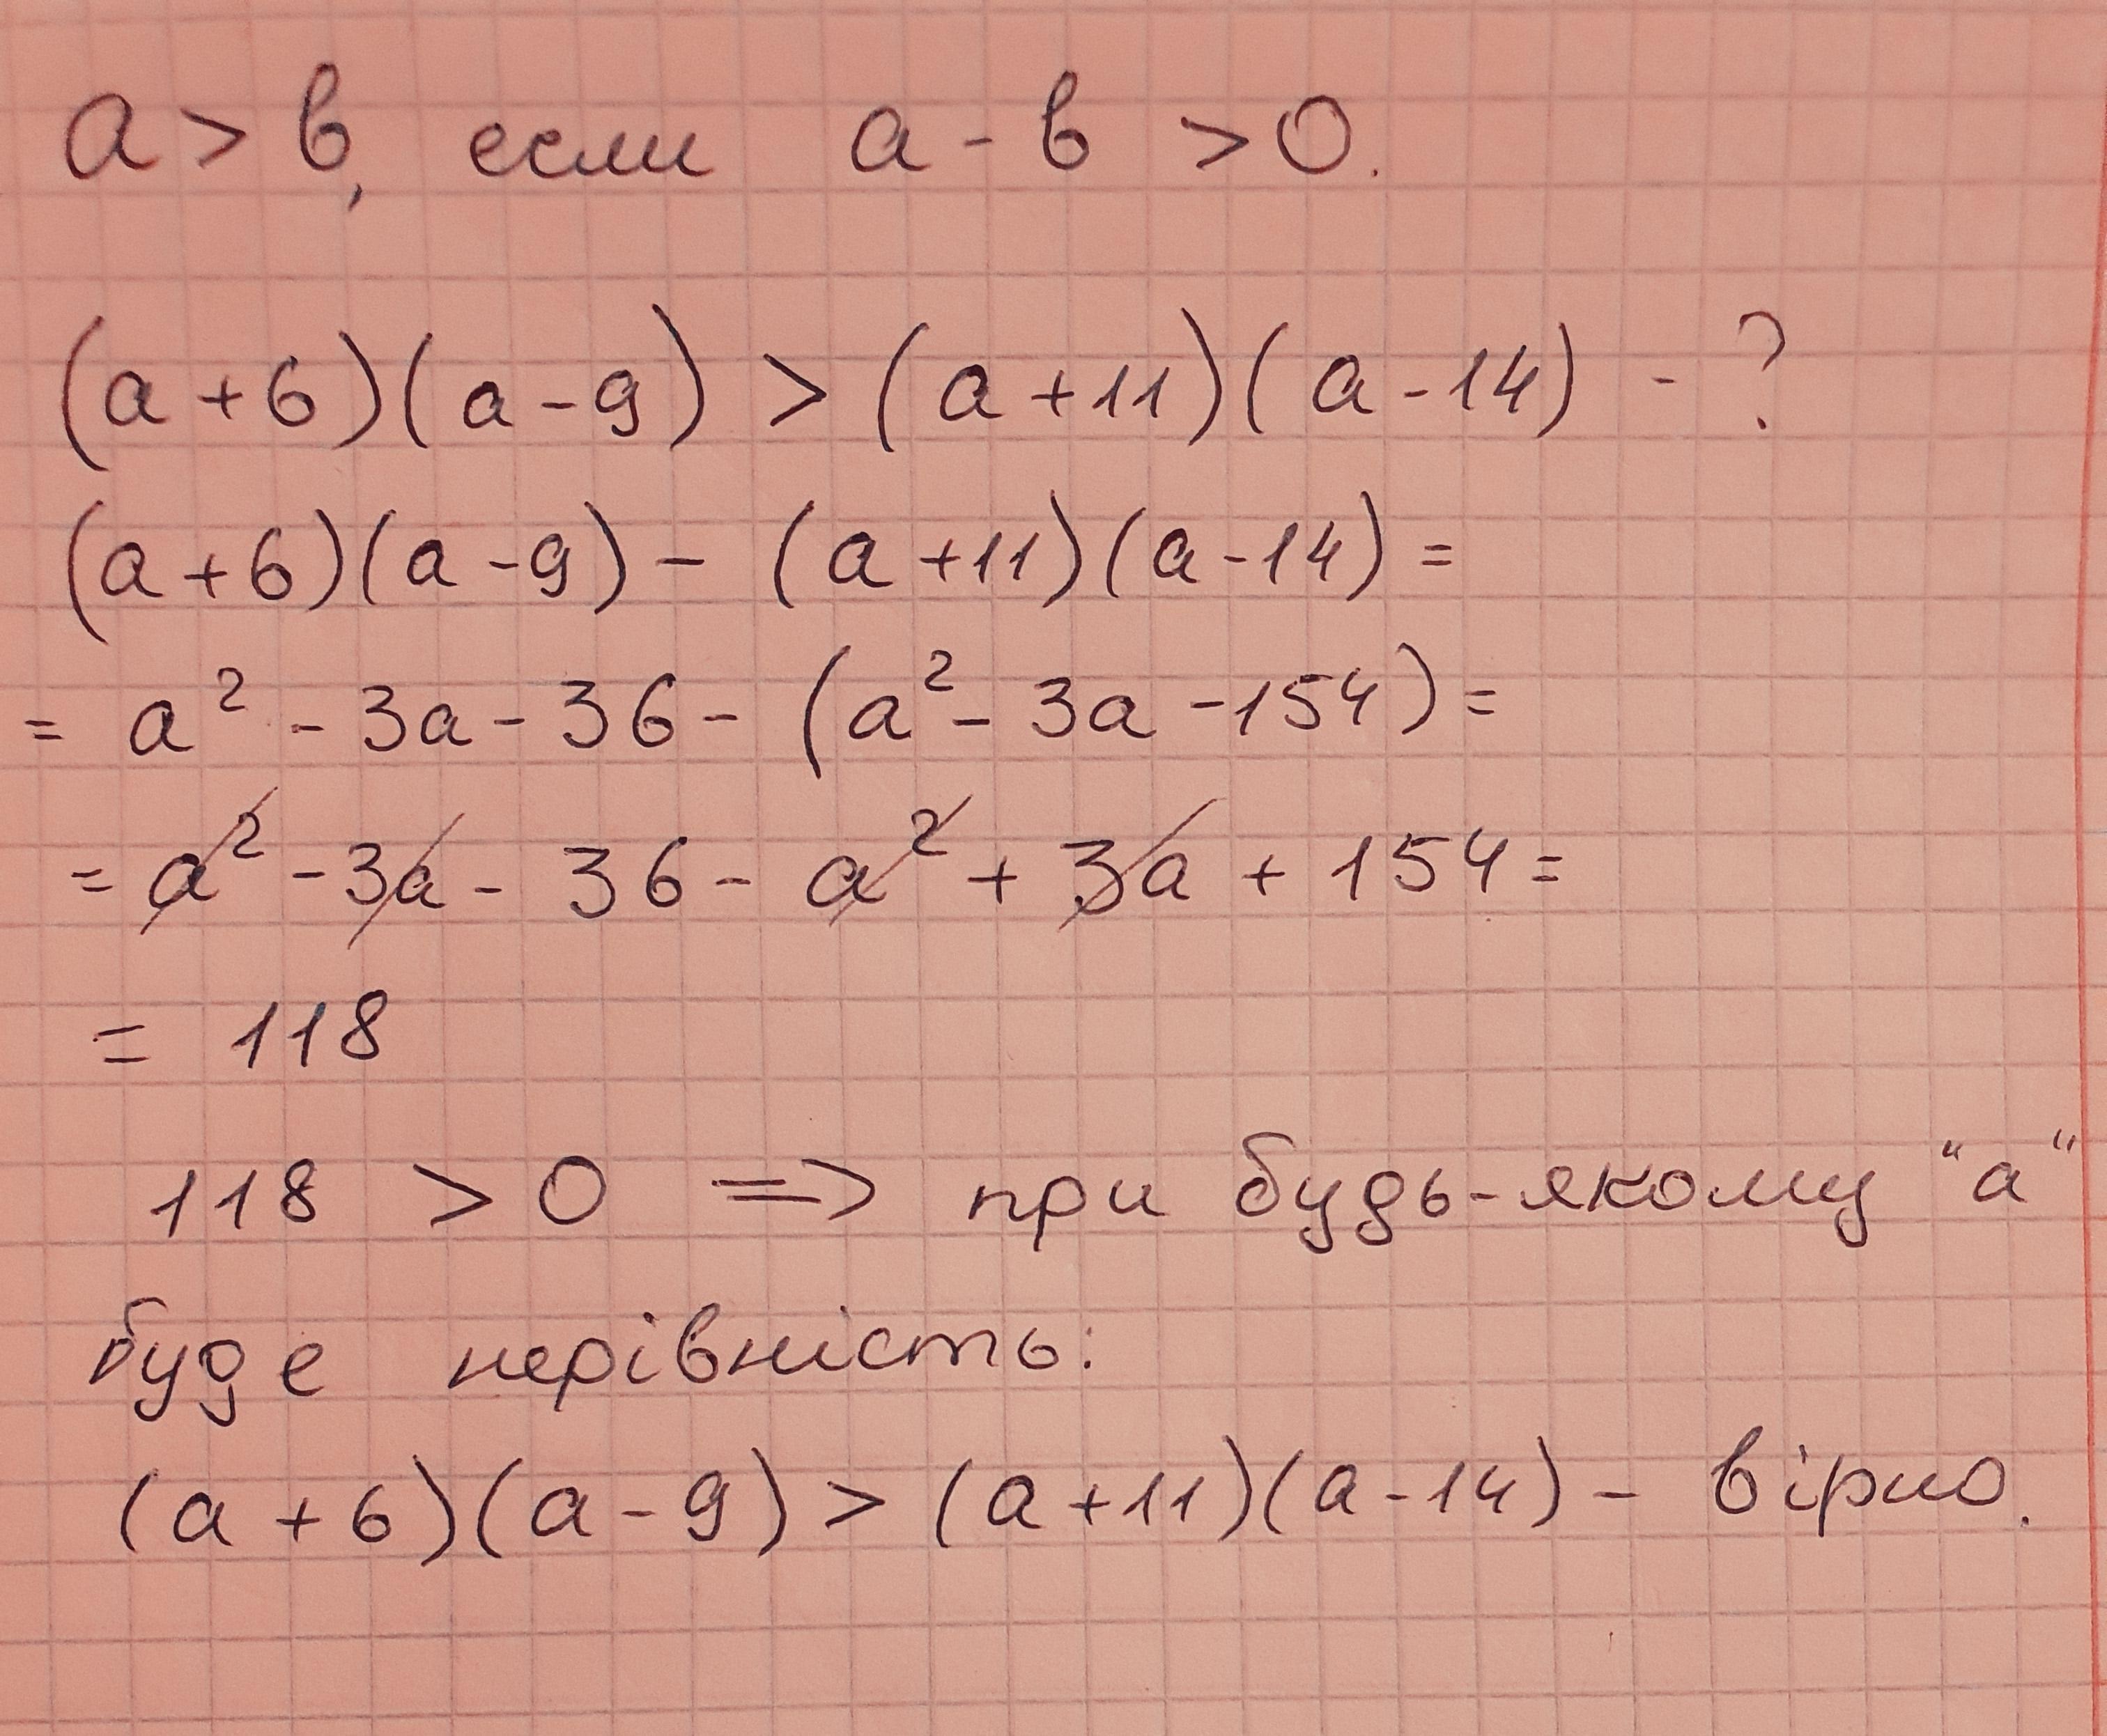 a > b, если a - b > 0.
(a + 6)(a - 9) > (a + 11)(a - 14) - ?
(a + 6)(a - 9) - (a + 11)(a - 14) =
= a² - 3a - 36 - (a² - 3a - 154) =
= a² - 3a - 36 - a² + 3a + 154 =
= 118
118 > 0 => при будь-якому "a"
буде нерівність:
(a + 6)(a - 9) > (a + 11)(a - 14) - вірно.